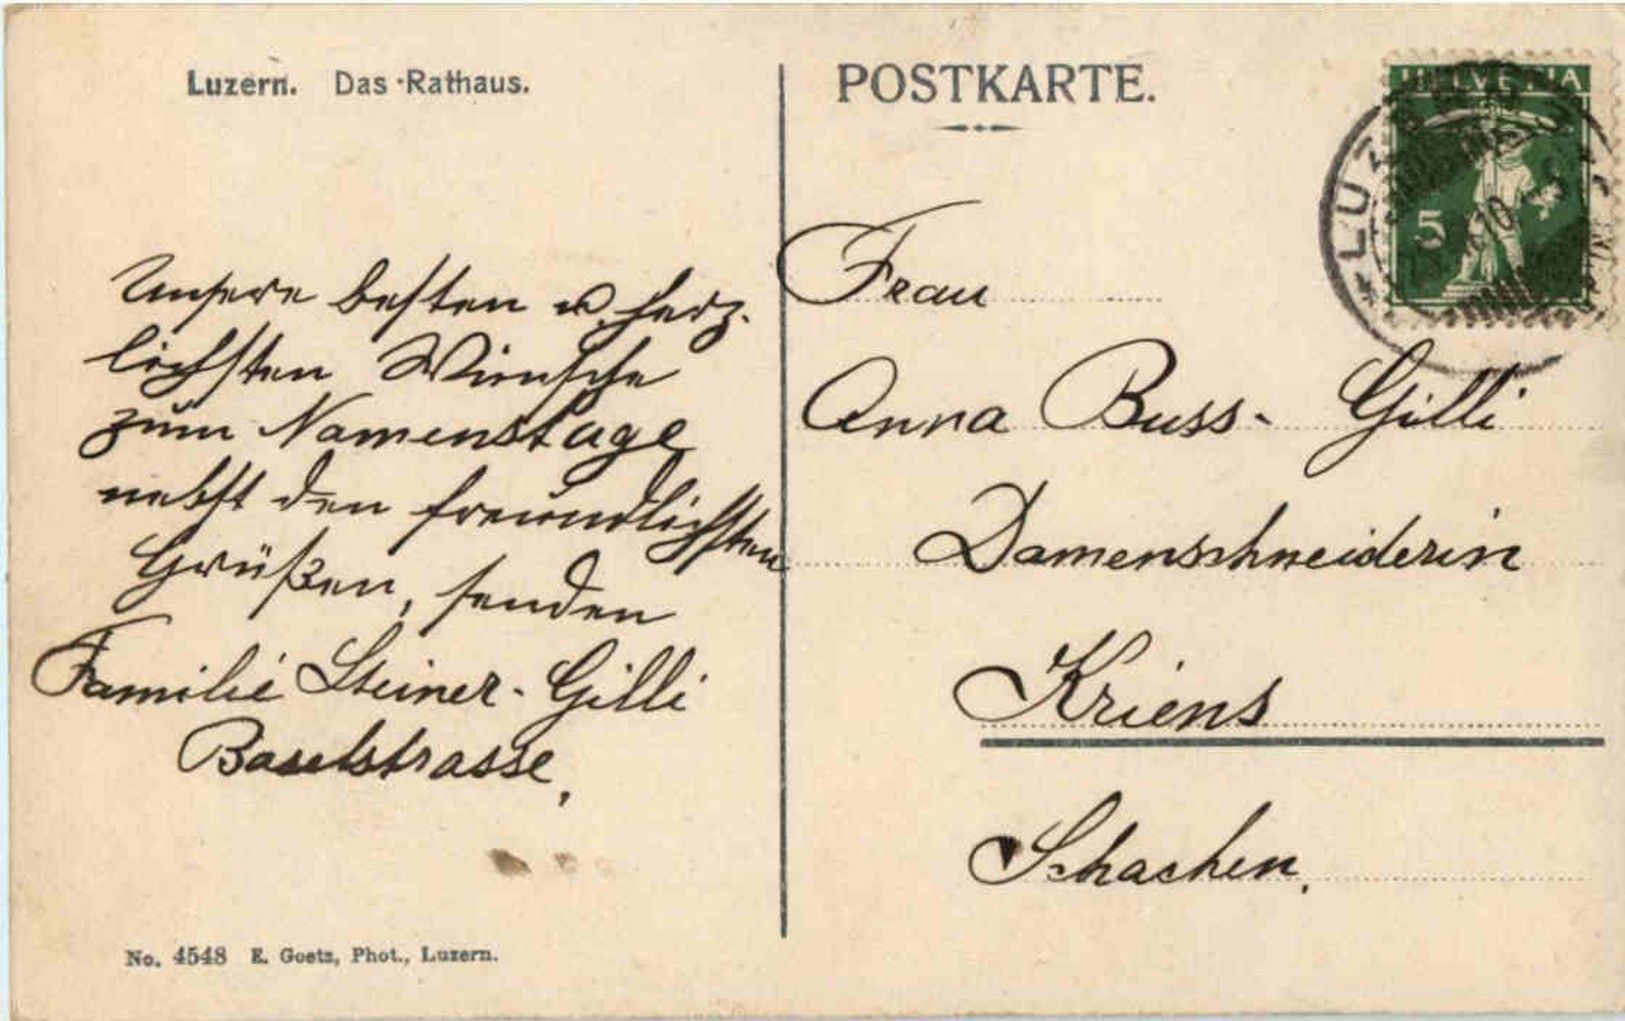 Luzern. Das Rathaus.
Unsere besten u. herz-
lichsten Wünsche
zum Namenstage
nebst den freundlichsten
Grüßen, senden
Familie Steiner-Gilli
Baselstrasse,
No. 4548 E. Goetz, Phot., Luzern.
POSTKARTE.
HELVETIA
5
LUZ
10
Frau
Anna Buss-Gilli
Damenschneiderin
Kriens
Schachen.